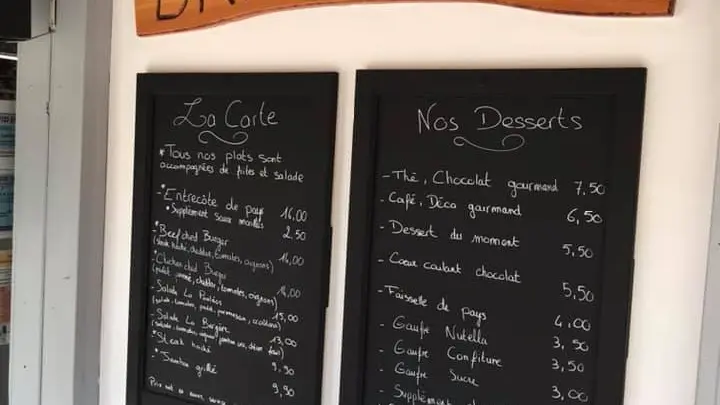 La Carte
* Tous nos plats sont
accompagnées de frites et salade
- Entrecôte de pays 16,00
* Supplément sauce morilles 2.50
* Beef ched Burger 14,00
(steak haché, cheddar, tomates, oignons)
* Chicken ched Burger 14,00
(poulet pané, cheddar, tomates, oignons)
- Salade La 15,00
(salade, tomates, poulet, parmesan, croûtons)
- Salade La Bergère 13,00
(salade, tomates,
* Steak haché 9,90
* Jambon grillé 9,90
Nos Desserts
- Thé, Chocolat gourmand 7,50
- Café, Déca gourmand 6,50
- Dessert du moment 5,50
- Coeur coulant chocolat 5,50
- Faisselle de pays 4,00
- Gaufre Nutella 3,50
- Gaufre Confiture 3,50
- Gaufre Sucre 3,00
- Supplément